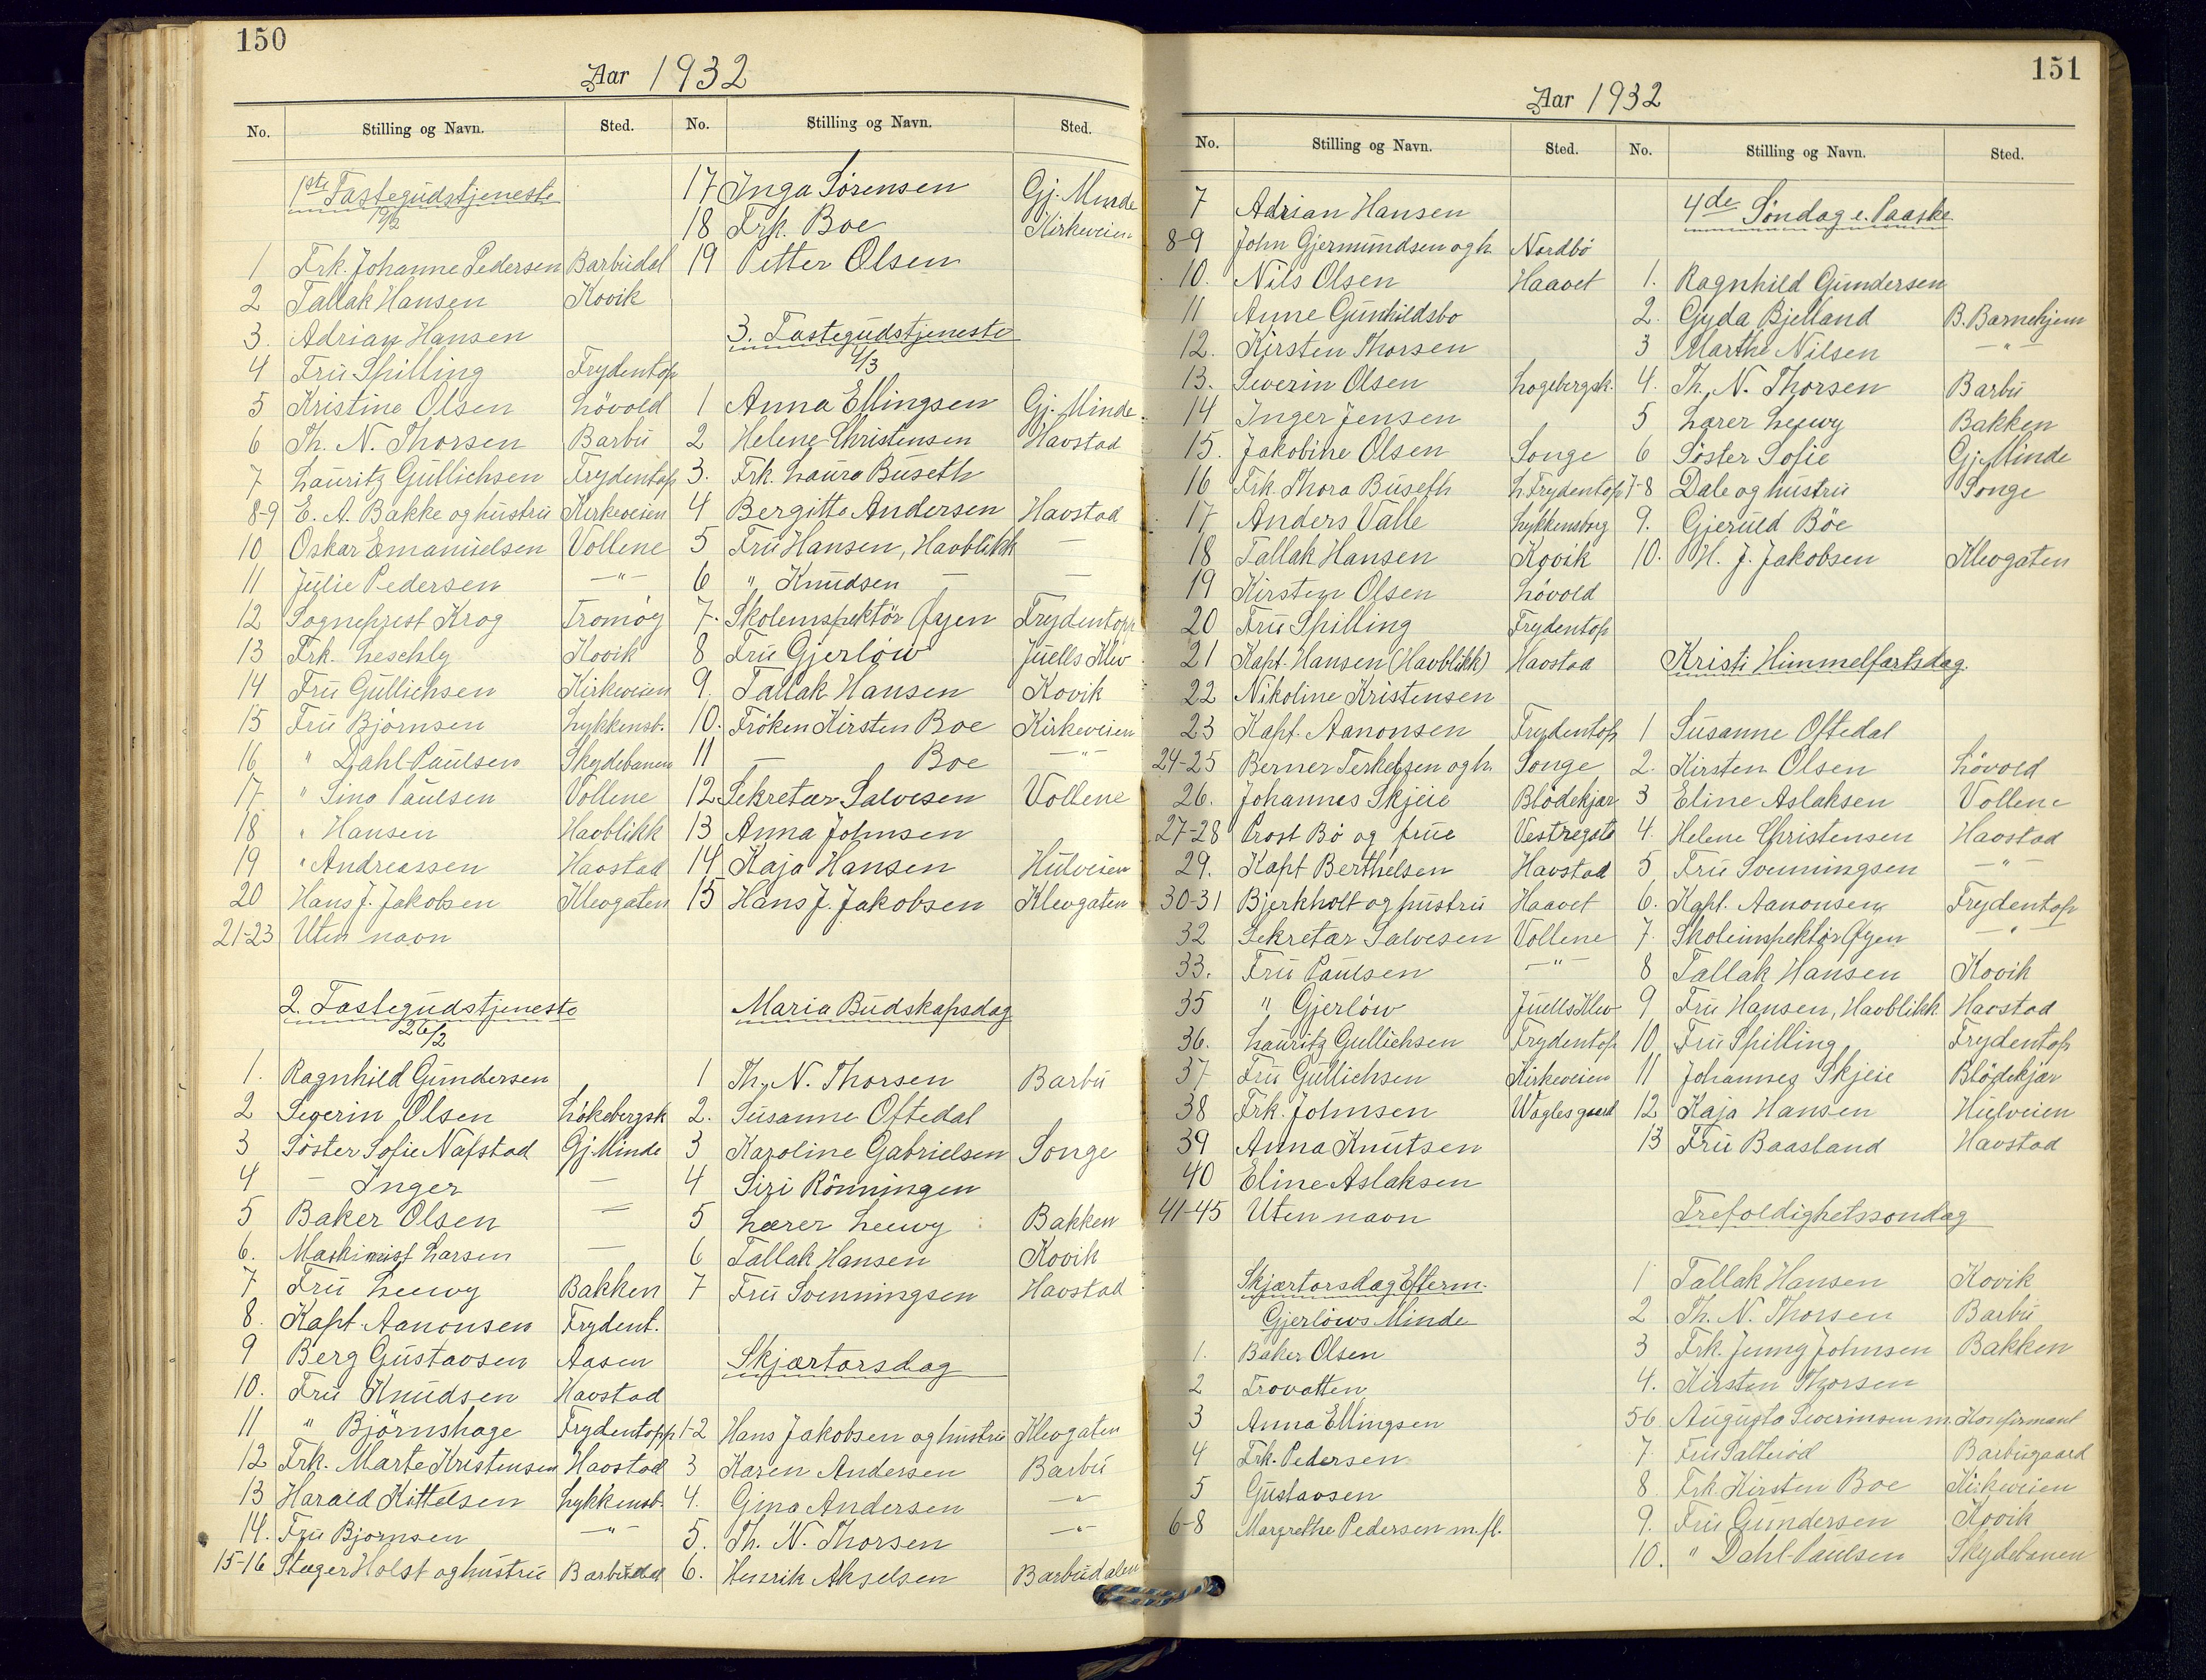 150
Aar 1932
No. Stilling og Navn. Sted.
1ste Fastegudstjeneste
19/2
1 Frk. Johanne Pedersen Barbudal
2 Tallak Hansen Kovik
3. Adrian Hansen
4 Fru Spilling Frydentop
5 Kristine Olsen Lövold
6 Th. N. Thorsen Barbu
7 Lauritz Gullichsen Frydentop
8-9 E. A. Bakke og hustru Kirkeveien
10 Oskar Emanuelsen Vollene
11 Julie Pedersen —"—
12 Sogneprest Krog Tromöy
13 Frk. Leschly Kovik
14 Fru Gullichsen Kirkeveien
15 Fru Björnsen Lykkensb.
16 " Dahl-Paulsen Skydebanen
17. " Sina Paulsen Vollene
18 " Hansen Havblikk
19 " Andreassen Havstad
20 Hans J. Jakobsen Klevgaten
21-23 Uten navn
2. Fastegudstjeneste
26/2
1. Ragnhild Gundersen
2 Severin Olsen Lökebergsk
3 Söster Sofie Nafstad Gj. Minde
4 — Inger —
5 Baker Olsen —
6. Maskinist Larsen —
7 Fru Leewy Bakken
8. Kapt. Aanonsen Frydent.
9 Berg Gustavsen Aasen
10. Fru Knudsen Havstad
11 " Björnshage Frydentopp
12 Frk. Marte Kristensen Havstad
13 Harald Kittelsen Lykkensb.
14. Fru Bjornsen —"—
15-16 Stager Holst og hustru Barbudal
No. Stilling og Navn. Sted.
17 Inga Sörensen Gj. Minde
18 Frk. Boe Kirkeveien
19 Petter Olsen
3. Fastegudstjeneste
4/3
1 Anna Ellingsen Gj. Minde
2 Helene Christensen Havstad
3. Frk. Laura Buseth
4 Bergitte Andersen Havstad
5 Fru Hansen, Havblikk —
6 " Knudsen — —
7. Skoleinspektör Öyen Frydentopp
8 Fru Gjerlöw Juells Klev
9. Tallak Hansen Kovik
10. Fröken Kirsten Boe Kirkeveien
11 — Boe —"—
12 Sekretær Salvesen Vollene
13 Anna Johnsen
14 Kaja Hansen Hulveien
15 Hans J. Jakobsen Klevgaten
Maria Budskapsdag
1 Th. N. Thorsen Barbu
2. Susanne Oftedal
3 Karoline Gabrielsen Songe
4 Siri Rönningen
5 Lærer Leewy Bakken
6 Tallak Hansen Kovik
7 Fru Svenningsen Havstad
Skjærtorsdag
1-2 Hans Jakobsen og hustru Klevgaten
3 Karen Andersen Barbu
4. Gina Andersen —"—
5. Th. N. Thorsen —"—
6. Henrik Akselsen Barbudalen
151
Aar 1932
No. Stilling og Navn. Sted.
7 Adrian Hansen
8-9 John Gjermundsen og h. Nordbö
10. Nils Olsen Haavet
11 Anne Gunhildsbo
12. Kirsten Thorsen
13. Severin Olsen Logebergsk.
14 Inger Jensen
15. Jakobine Olsen Songe
16 Frk. Thora Buseth L. Frydentop
17 Anders Valle Lykkensborg
18 Tallak Hansen Kovik
19 Kirsten Olsen Lövold
20 Fru Spilling Frydentop
21 Kapt. Hansen (Havblikk) Havstad
22 Nikoline Kristensen
23 Kapt. Aanonsen Frydentop
24-25 Berner Terkelsen og h. Songe
26. Johannes Skjeie Blödekjær
27-28 Prost Bö og frue Vestregate
29. Kapt Berthelsen Havstad
30-31 Bjerkholt og hustru Haavet
32 Sekretær Salvesen Vollene
33. Fru Paulsen —"—
35 " Gjerlöw Juells Klev
36. Lauritz Gullichsen Frydentop
37 Fru Gullichsen Kirkeveien
38 Frk. Johnsen Waglesgaard
39 Anna Knutsen
40 Eline Aslaksen
41-45 Uten navn
Skjærtorsdag Efterm.
Gjerlöws Minde
1. Baker Olsen
2 Trovatten
3 Anna Ellingsen
4 Frk. Pedersen
5 Gustavsen
6-8 Margrethe Pedersen m. fl.
No. Stilling og Navn. Sted.
4de Söndag e. Paaske
1. Ragnhild Gundersen
2. Gyda Bjelland B. Barnehjem
3 Marthe Nilsen —"—
4. Th. N. Thorsen Barbu
5 Lærer Leewy Bakken
6 Söster Sofie Gj. Minde
7-8 Dale og hustru Songe
9. Gjeruld Böe
10. H. J. Jakobsen Klevgaten
Kristi Himmelfartsdag.
1 Susanne Oftedal
2. Kirsten Olsen Lövold
3 Eline Aslaksen Vollene
4. Helene Christensen Havstad
5 Fru Svenningsen —"—
6. Kapt. Aanonsen Frydentop
7. Skoleinspektör Öyen —"—
8 Tallak Hansen Kovik
9 Fru Hansen, Havblikk Havstad
10 Fru Spilling Frydentop
11 Johannes Skjeie Blödekjær
12 Kaja Hansen Hulveien
13 Fru Baasland Havstad
Trefoldighetssondag
1 Tallak Hansen Kovik
2 Th. N. Thorsen Barbu
3 Frk. Jenny Johnsen Bakken
4. Kirsten Thorsen
56. Augusta Severinsen m. Konfirmant
7. Fru Salteröd Barbugaard
8. Frk. Kirsten Boe Kirkeveien
9. Fru Gundersen Kovik
10. " Dahl-Paulsen Skydebanen